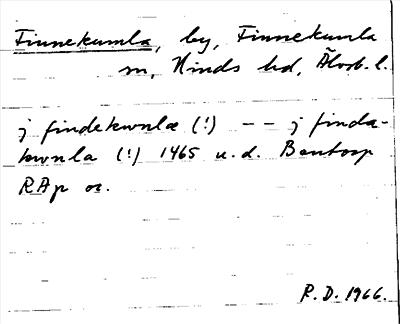 Finnekumla, by, Finnekumla
sn, Kinds hd, Älvsb. l.
j findekwnla (!) -- j finda-
kwnla (!) 1465 u.d. Bentorp
RAp or.
R.D. 1966.